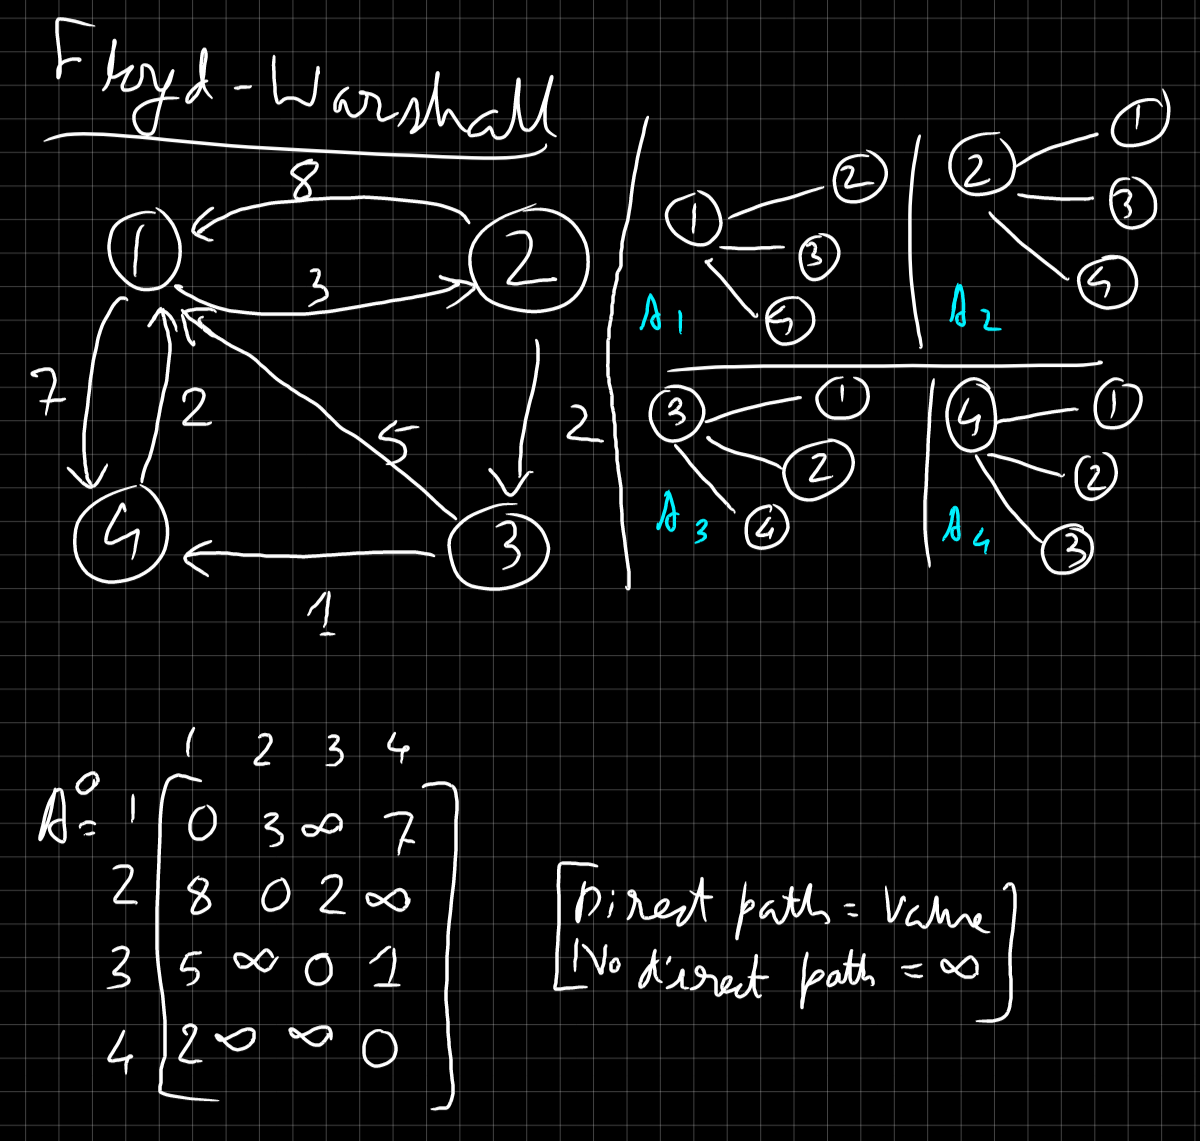 Floyd-Warshall
8
1 2
3
7 2 5 2
4 3
1
1 2
3
4
A1
2 1
3
4
A2
3 1
2
4
A3
4 1
2
3
A4
1 2 3 4
A⁰= 1 [0 3 ∞ 7]
2 [8 0 2 ∞]
3 [5 ∞ 0 1]
4 [2 ∞ ∞ 0]
[Direct path = Value
No direct path = ∞]